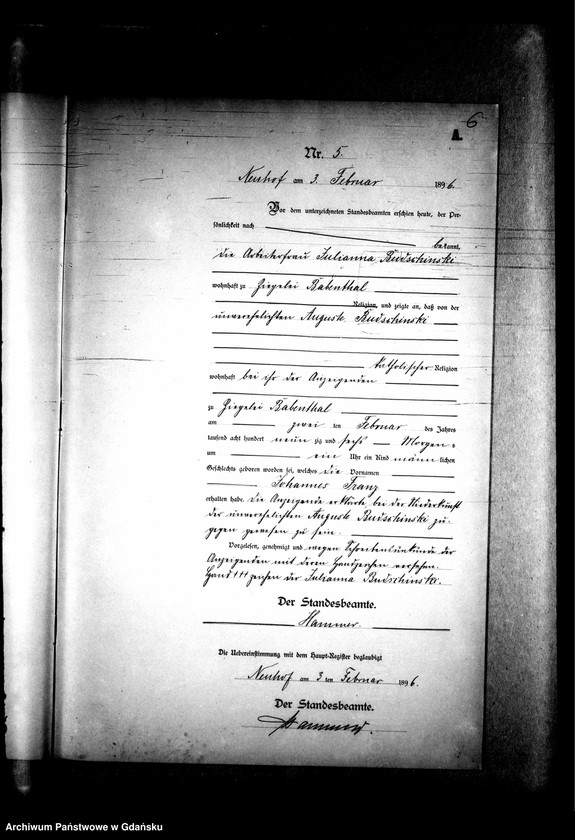 6
A.
Nr. 5.
Neuhof am 3. Februar 1896.
Vor dem unterzeichneten Standesbeamten erschien heute, der Per-
sönlichkeit nach
bekannt,
die Arbeiterfrau Julianna Rudschinski
wohnhaft zu Ziegelei Rabenthal
Religion, und zeigte an, daß von der
unverehelichten Auguste Rudschinski
katholischer Religion
wohnhaft bei ihr der Anzeigenden
zu Ziegelei Rabenthal
am zwei ten Februar des Jahres
tausend acht hundert neun zig und sechs Morgens
um ein Uhr ein Kind männ lichen
Geschlechts geboren worden sei, welches die Vornamen
Johannes Franz
erhalten habe. Die Anzeigende erklärte, bei der Niederkunft
der unverehelichten Auguste Rudschinski zu-
gegen gewesen zu sein.
Vorgelesen, genehmigt und wegen Schreibensunkunde der
Anzeigenden mit deren Handzeichen versehen.
Hand +++ zeichen der Julianna Rudschinski.
Der Standesbeamte.
Hammer.
Die Uebereinstimmung mit dem Haupt-Register beglaubigt
Neuhof am 3 ten Februar 1896.
Der Standesbeamte.
Hammer.
Archiwum Państwowe w Gdańsku